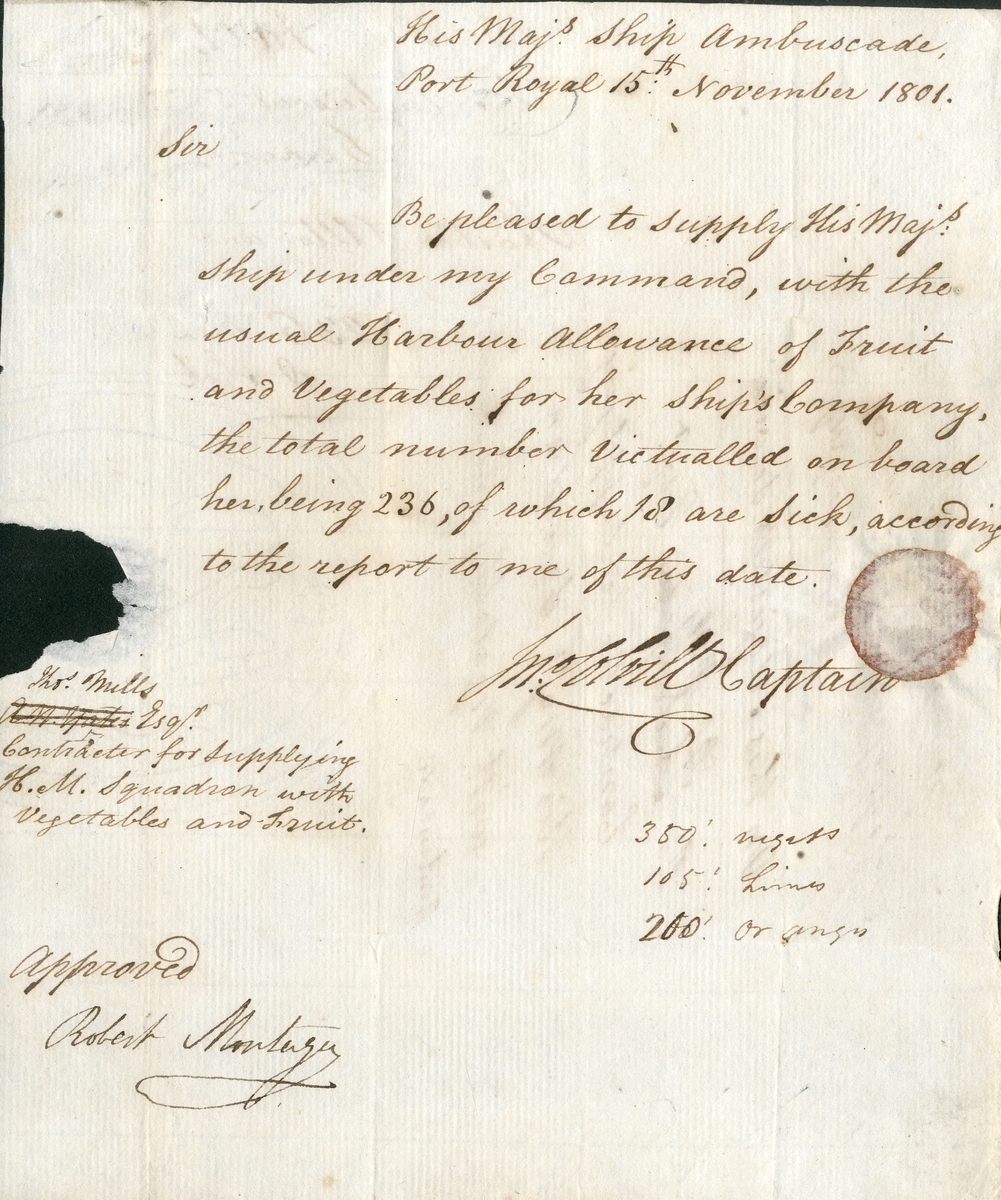 His Maj.s Ship Ambuscade,
Port Royal 15.th November 1801.
Sir
Be pleased to supply His Maj.s
Ship under my Command, with the
usual Harbour Allowance of Fruit
and Vegetables for her Ship's Company,
the total number Victualled on board
her, being 236, of which 18 are Sick, according
to the report to me of this date.
Jno Colvill Captain
Thos. Mills
Esqr.
Contracter for Supplying
H. M. Squadron with
Vegetables and Fruit.
350. vegets
105. Limes
200. Oranges
Approved
Robert Montagu